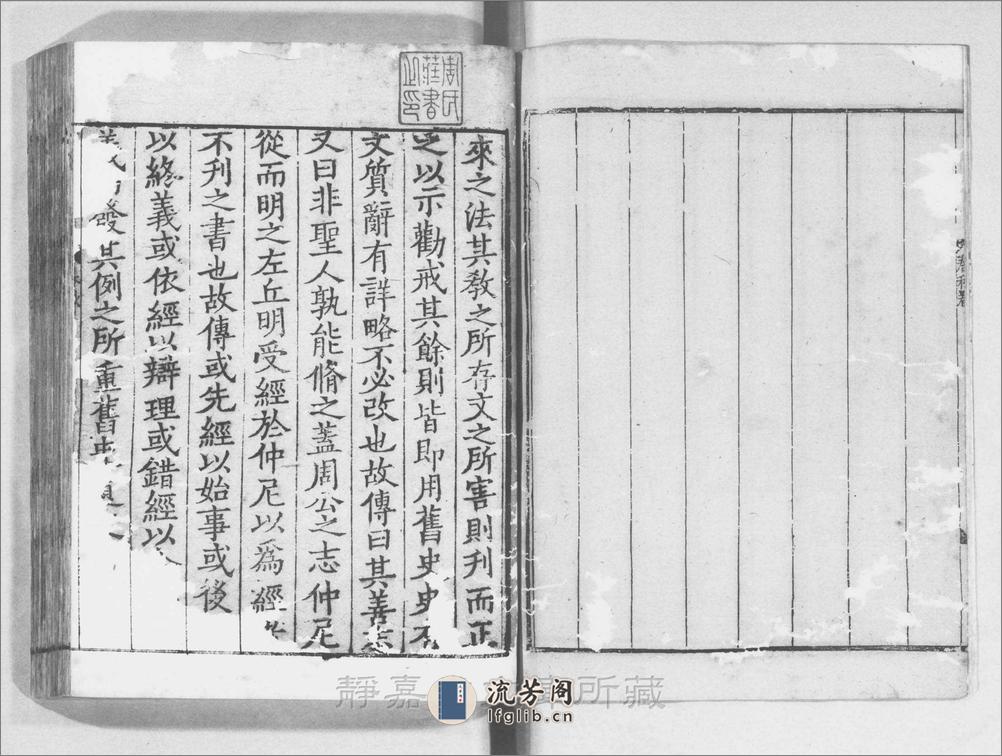 來之法其敎之所存文之所害則刋而正
之以示勸戒其餘則皆即用舊史史有
文質辭有詳略不必改也故傳曰其善志
又曰非聖人孰能脩之蓋周公之志仲尼
從而明之左丘明受經於仲尼以爲經
不刋之書也故傳或先經以始事或後
以終義或依經以辯理或錯經以
發其例之所重舊史
周氏
藏書
之印
靜嘉 所藏
流芳阁
lfglib.cn